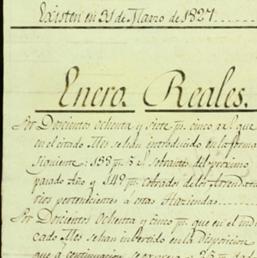 Existen en 31 de Marzo de 1827
Enero. Reales.
Por Doscientos ochenta y siete p.s cinco r.s que
en el citado Mes se han introducido en la forma
siguiente: 138 p.s 5 el sobrante del próximo
pasado Año y 149 p.s cobrados de los Arrendata
rios pertenecientes á estas Haciendas
Por Doscientos ochenta y cinco p.s que en el indi
cado Mes se han invertido en la Disposicion
que a continuacion se expresa